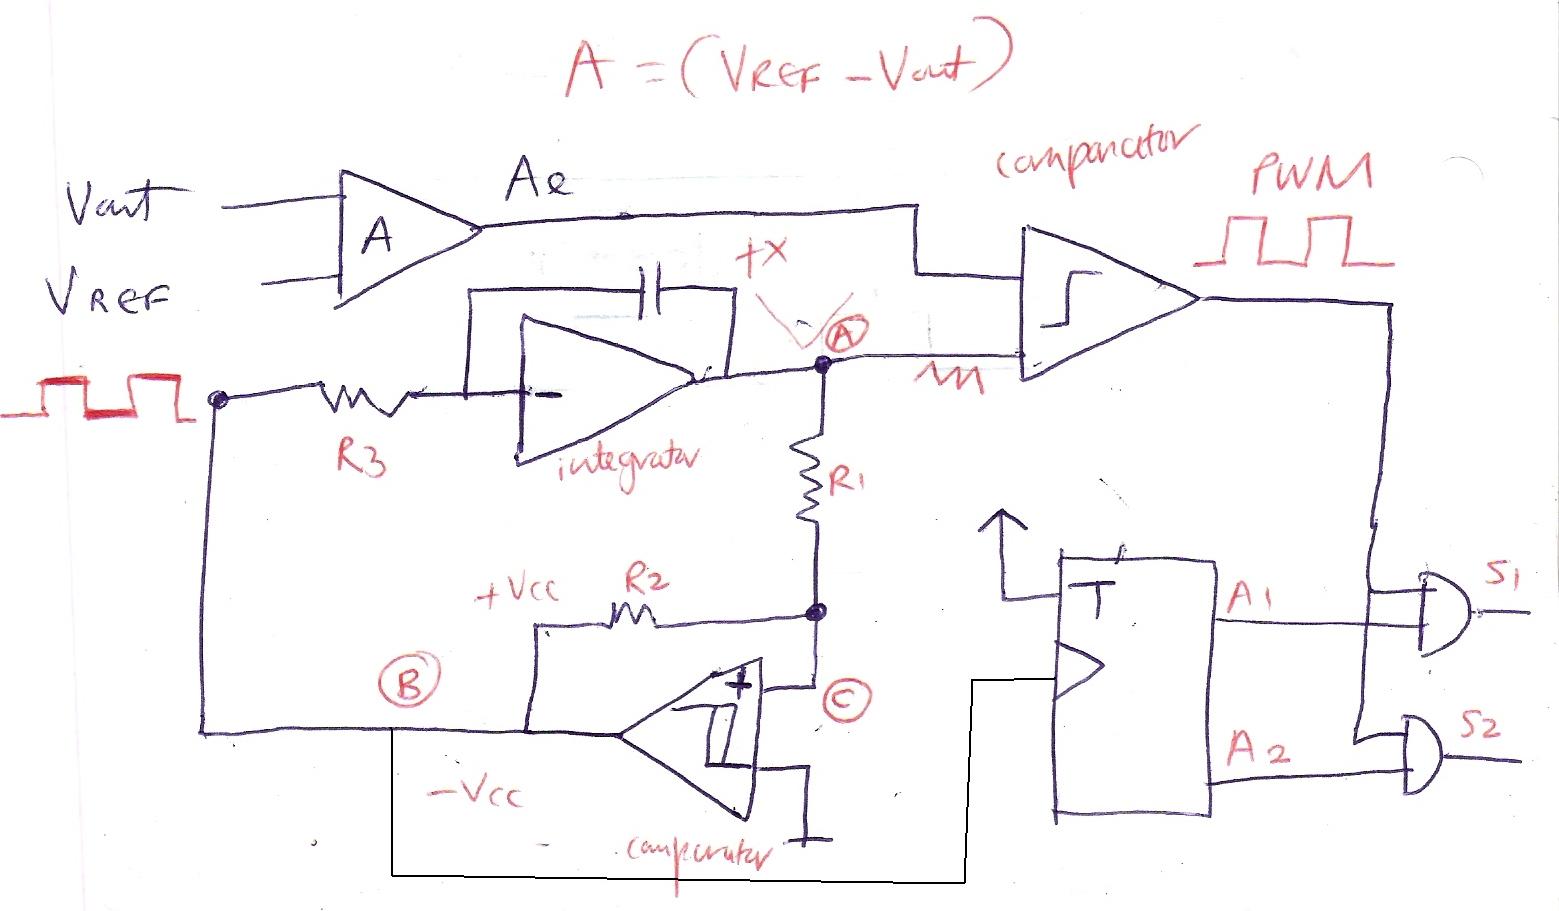 A = (VREF - Vout)
comparator
PWM
Vout
A
Ae
VREF
+X
A
-
R3
integrator
R1
+Vcc
R2
T
A1
S1
B
+
C
-Vcc
A2
S2
comparator